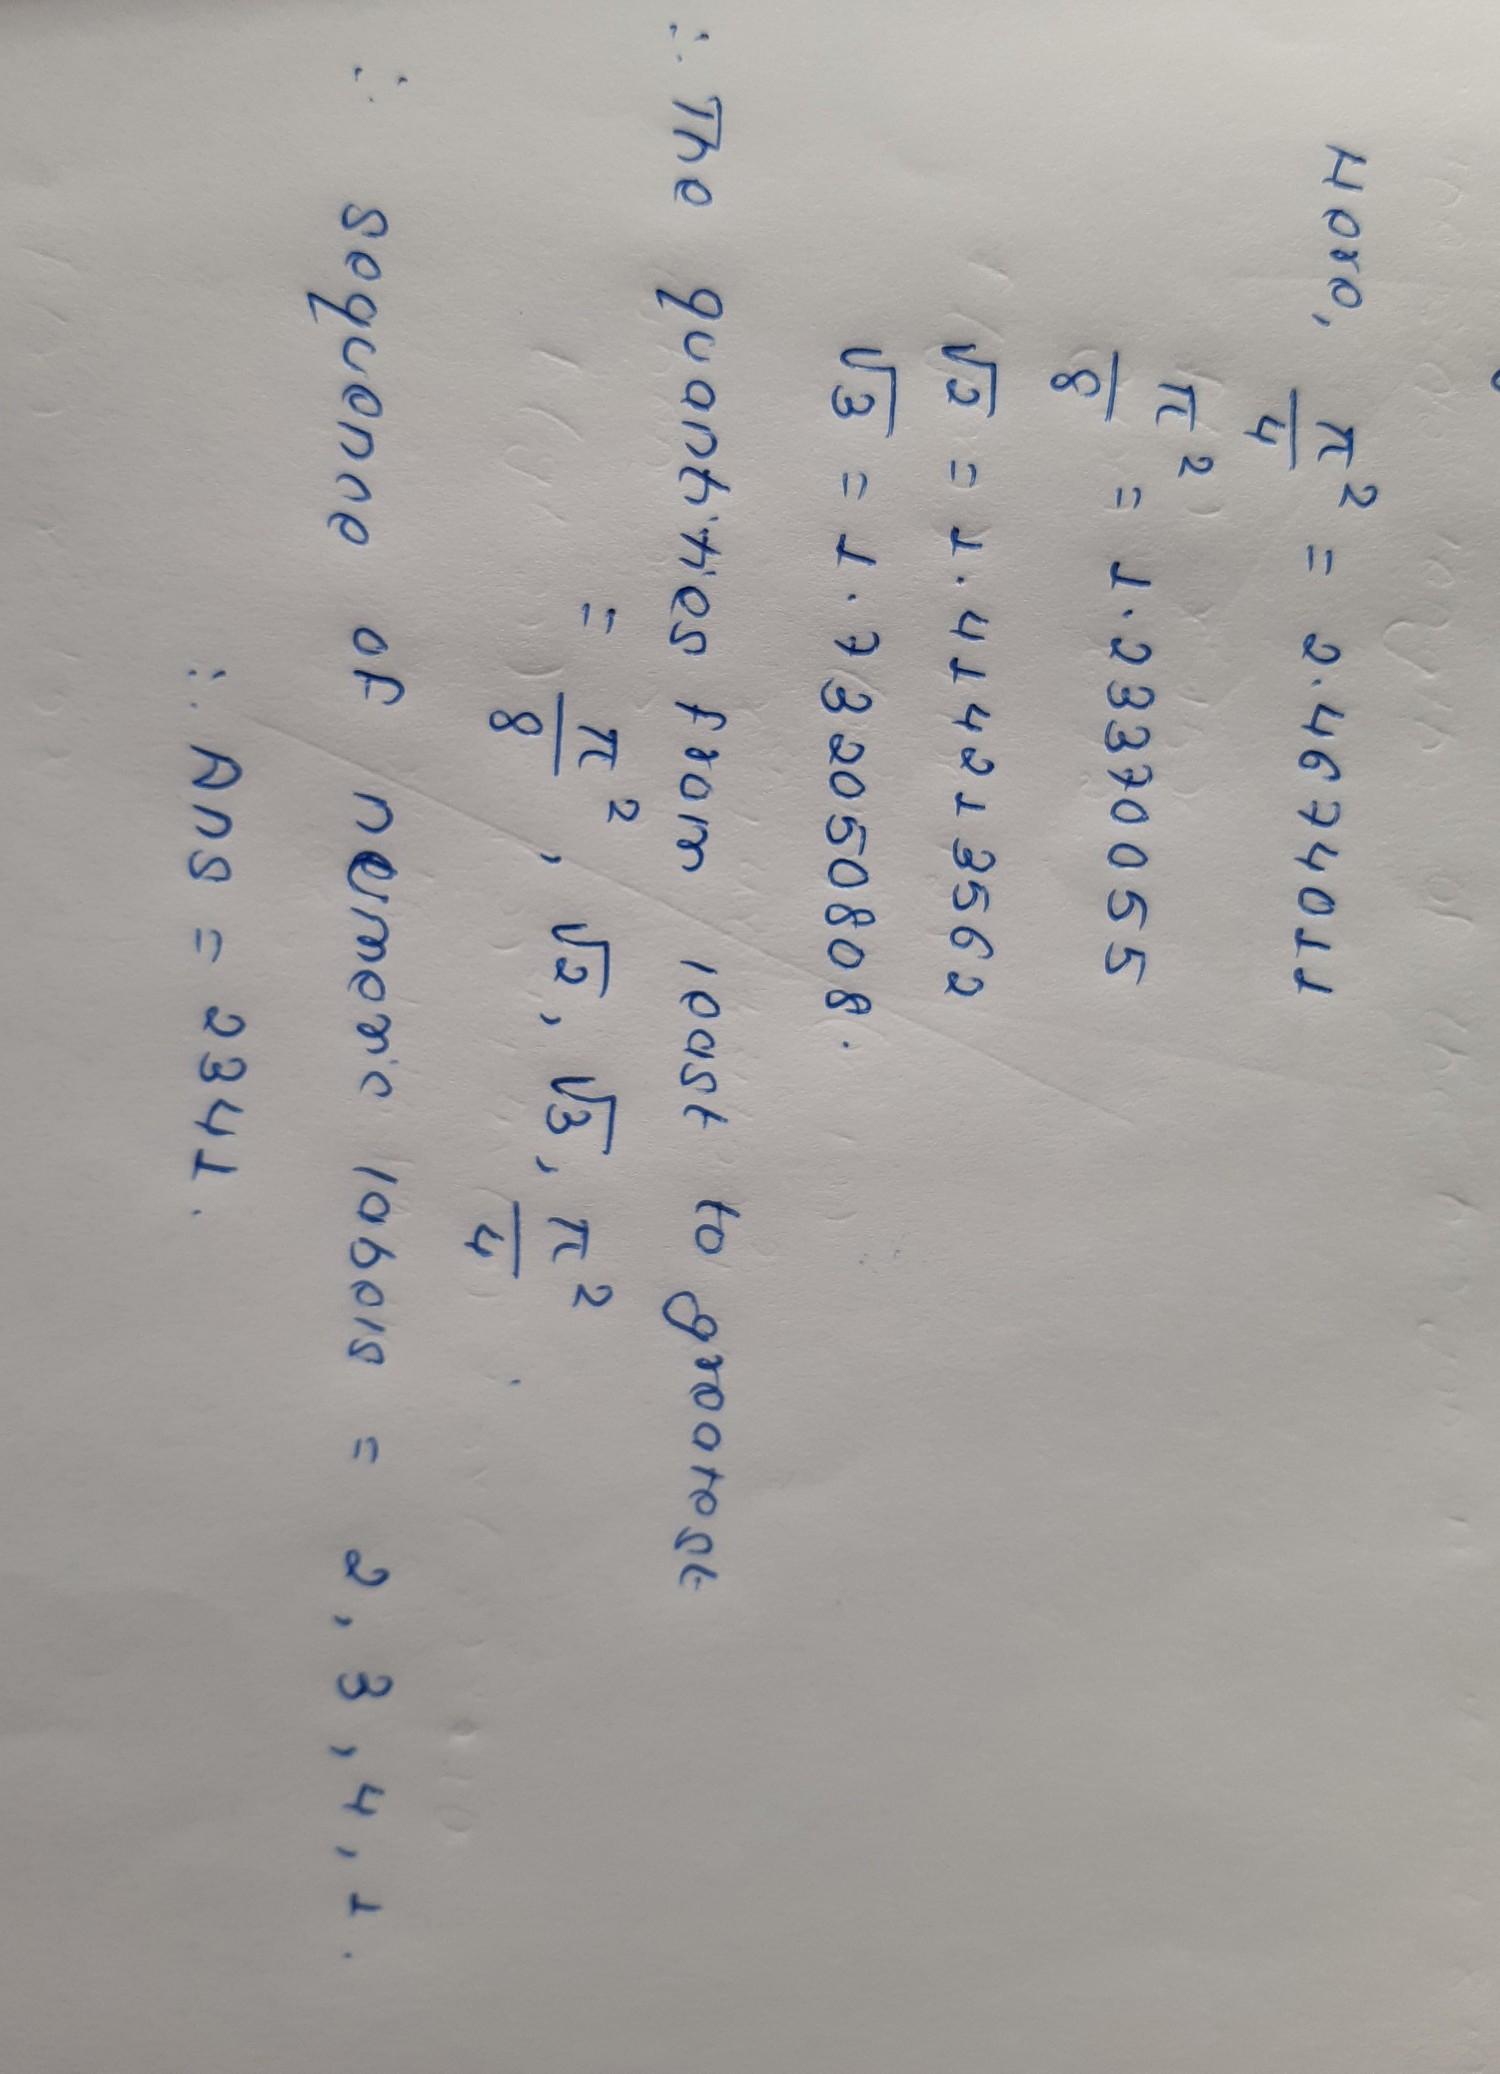 Here, π²/4 = 2.4674011
π²/8 = 1.23370055
√2 = 1.414213562
√3 = 1.732050808.
∴ The quantities from least to greatest
= π²/8, √2, √3, π²/4
∴ sequence of numeric labels = 2, 3, 4, 1.
∴ Ans = 2341.